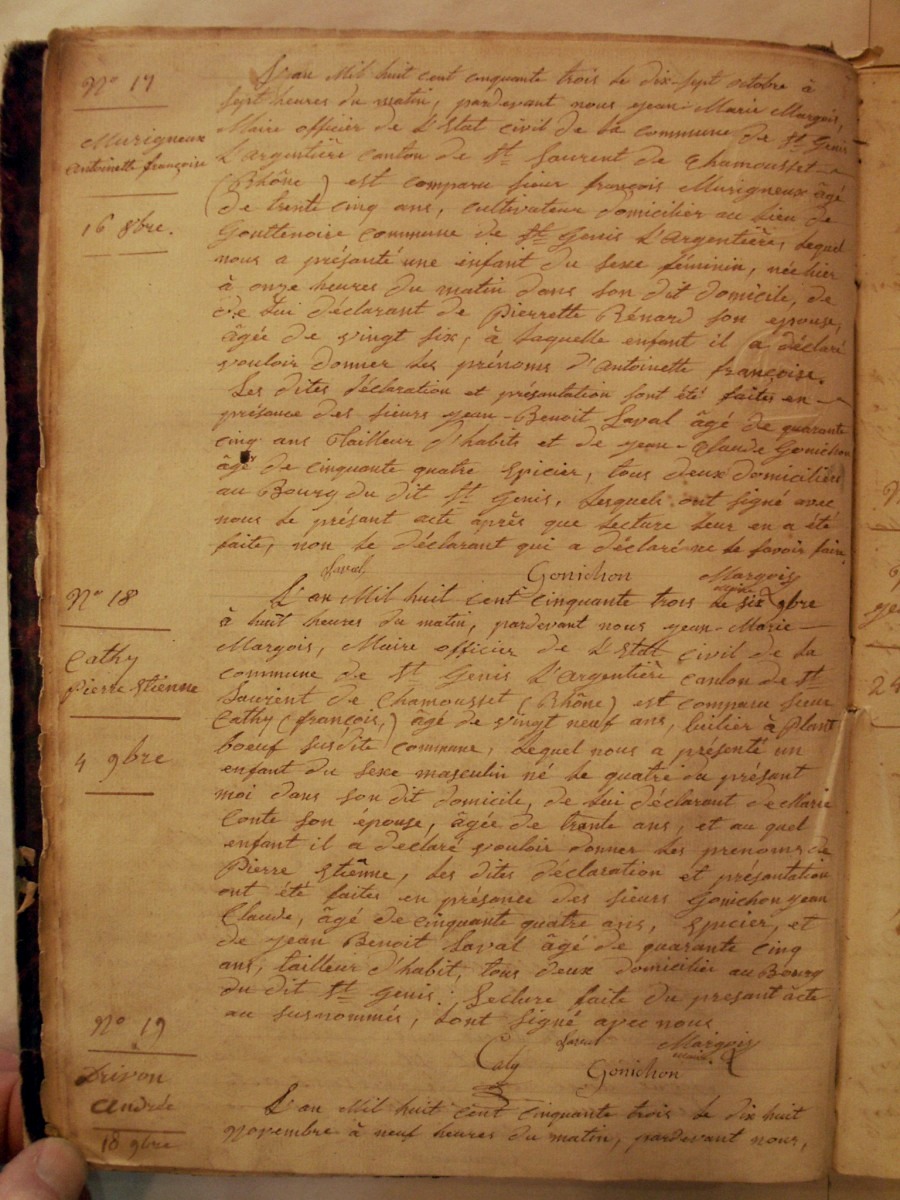 N° 17
Murigneux
Antoinette françoise
16 8bre.
L'an Mil huit cent cinquante trois le dix-sept octobre à
sept heures du matin, pardevant nous jean-Marie Margois,
Maire officier de L'Etat civil de la commune de St. Genis
L'argentière canton de St. Laurent de Chamousset —
(Rhône) est comparu sieur françois Murigneux âgé
de trente cinq ans, cultivateur domicilier au lieu de
Gouttenoire commune de St. Genis L'Argentière, lequel
nous a présanté une enfant du sexe féminin, née hier
à onze heures du matin dans son dit domicile, de
de Lui déclarant de Pierrette Bénard son epouse,
âgée de vingt six, à Laquelle enfant il a déclaré
vouloir donner les prénoms d'Antoinette françoise.
Les dites déclaration et présantation sont été faites en —
présance des sieurs jean-Benoit Laval âgé de quarante
cinq ans Tailleur d'habits et de jean-Claude Gonichon
âgé de cinquante quatre Epicier, tous deux domiciliers
au Bourg du dit St. Genis, Lesquels ont signé avec
nous le présant acte après que Lecture Leur en a été
faite, non le déclarant qui a déclaré ne le savoir faire.
Laval Gonichon Margois
maire
N° 18
Cathy
Pierre Etienne
4 9bre
L'an Mil huit cent cinquante trois le six 9bre
à huit heures du matin, pardevant nous jean-Marie —
Margois, Maire officier de L'Etat civil de La
commune de St Genis L'Argentière canton de St
Laurent de Chamousset (Rhône) est comparu sieur
Cathy (françois,) âgé de vingt neuf ans, tuilier à Plant
boeuf susdite commune, Lequel nous a présenté un
enfant du sexe masculin né le quatre du présant
moi dans son dit domicile, de Lui déclarant de Marie
Conte son épouse, âgée de trente ans, et au quel
enfant il a déclaré vouloir donner les prenoms de
Pierre Etiênne, Les dites déclaration et présantation
ont été faites en présance des sieurs Gonichon jean
Claude, âgé de cinquante quatre ans, Epicier, et
de jean Benoit Laval âgé de quarante cinq
ans, tailleur d'habit, tous deux domicilier au Bourg
du dit St Genis. Lecture faite du presant âcte
au susnommés, Lont signé avec nous
Laval Margois
maire
Caty Gonichon
N° 19
Drivon
Andrée
18 9bre
L'an Mil huit cent cinquante trois Le dix huit
Novembre à neuf heures du matin, pardevant nous,